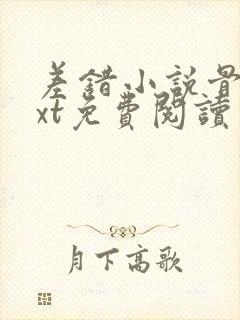 差錯小説骨
xt免費閱讀
月下高歌